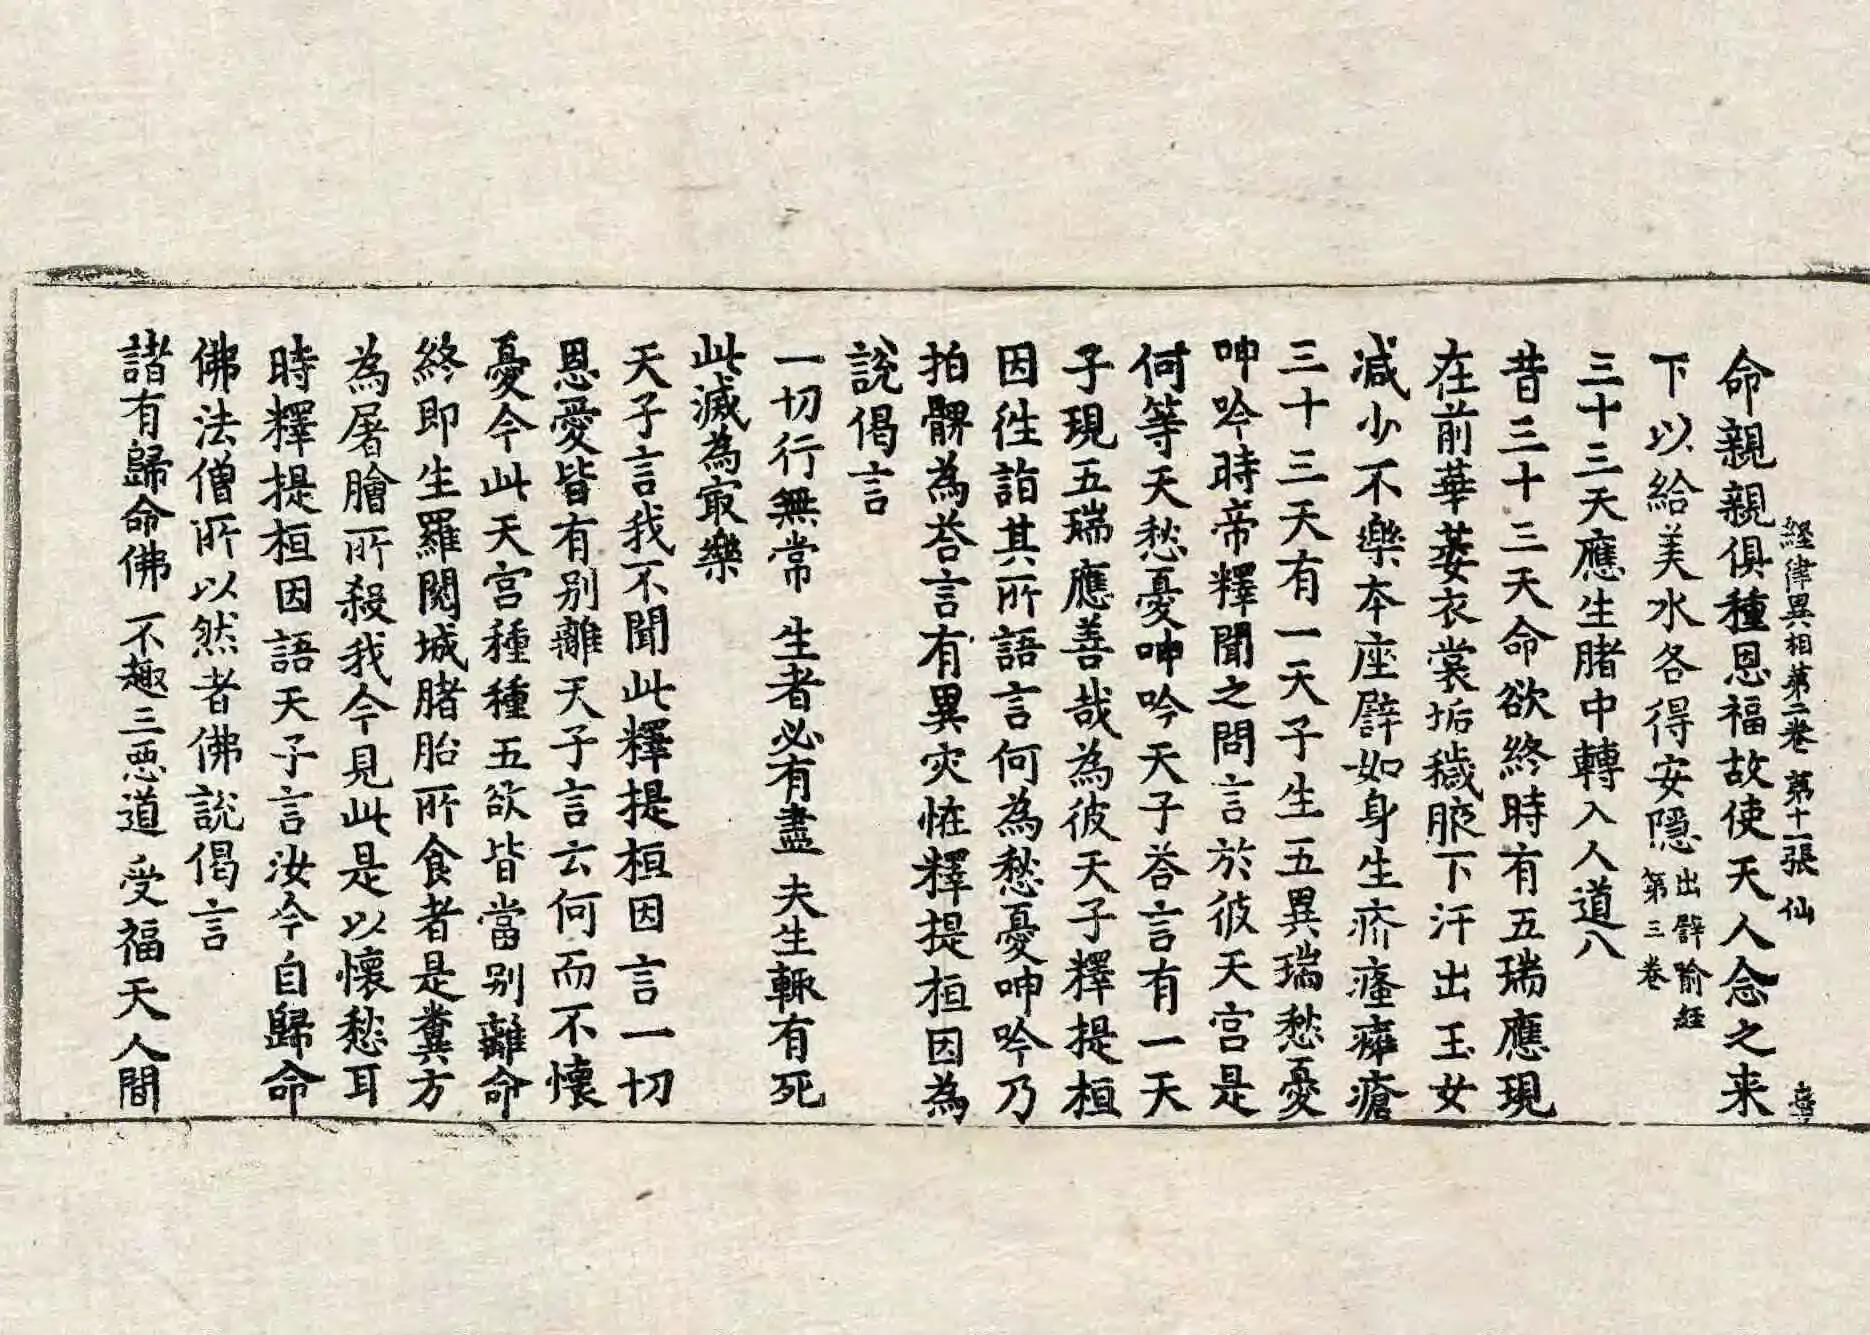 経律異相第二卷 第十一張 仙
命親親俱種恩福故使天人念之来
下以給美水各得安隱出譬喻経第三卷
三十三天應生賭中轉入人道八
昔三十三天命欲終時有五瑞應現
在前華萎衣裳垢穢腋下汗出玉女
減少不樂本座譬如身生疥瘙癰瘡
三十三天有一天子生五異瑞愁憂
呻吟時帝釋聞之問言於彼天宮是
何等天愁憂呻吟天子荅言有一天
子現五瑞應善哉為彼天子釋提桓
因徃詣其所語言何為愁憂呻吟乃
拍髀為荅言有異灾恠釋提桓因為
說偈言
一切行無常 生者必有盡 夫生輙有死
此滅為㝡樂
天子言我不聞此釋提桓因言一切
恩愛皆有别離天子言云何而不懷
憂今此天宮種種五欲皆當别離命
終即生羅閱城賭胎所食者是糞方
為屠膾所殺我今見此是以懷愁耳
時釋提桓因語天子言汝今自歸命
佛法僧所以然者佛說偈言
諸有歸命佛 不趣三惡道 受福天人間